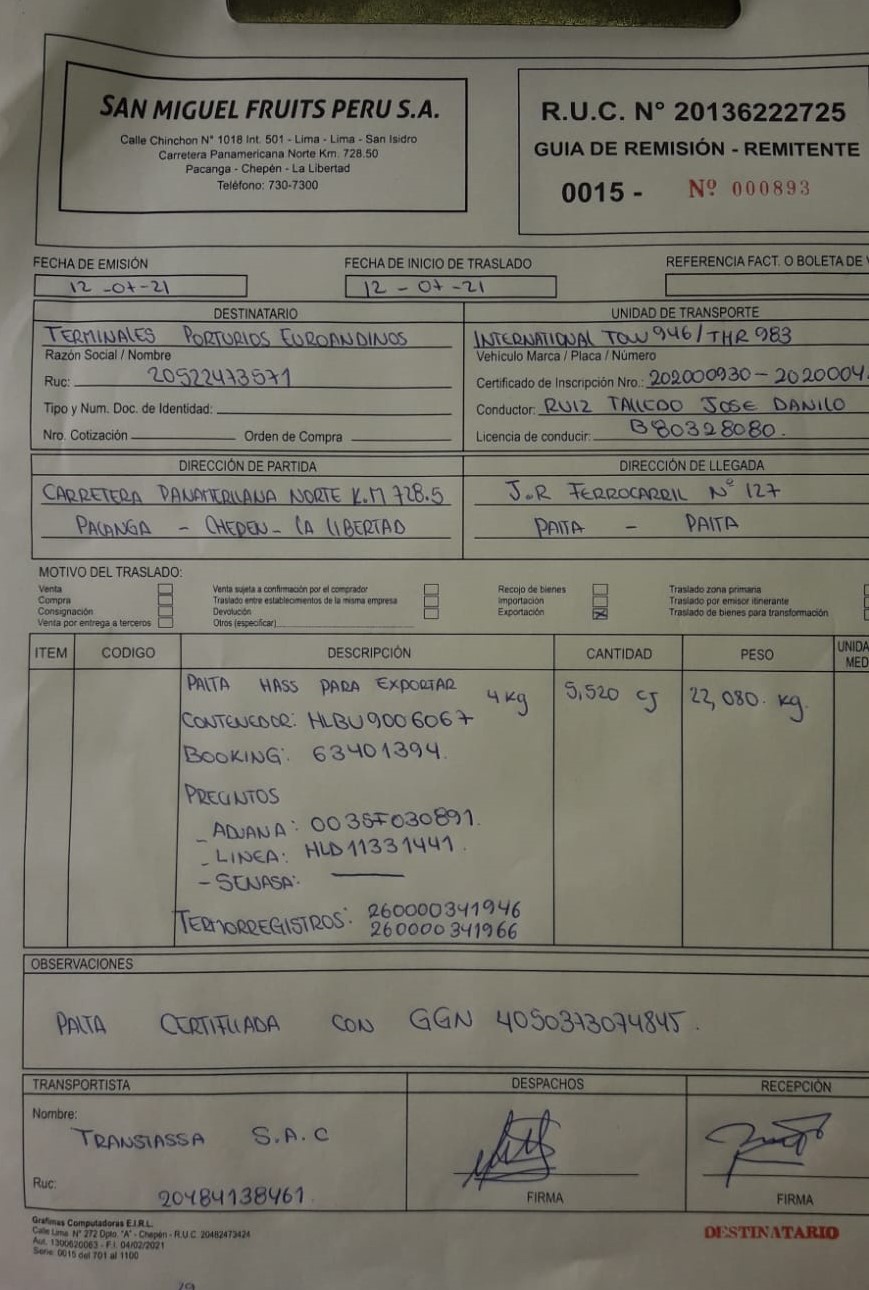 SAN MIGUEL FRUITS PERU S.A.
Calle Chinchon N° 1018 Int. 501 - Lima - Lima - San Isidro
Carretera Panamericana Norte Km. 728.50
Pacanga - Chepén - La Libertad
Teléfono: 730-7300
R.U.C. N° 20136222725
GUIA DE REMISIÓN - REMITENTE
0015 - Nº 000893
FECHA DE EMISIÓN
12 -07-21
FECHA DE INICIO DE TRASLADO
12 - 07 -21
REFERENCIA FACT. O BOLETA DE
DESTINATARIO
TERMINALES PORTURIOS EUROANDINOS
Razón Social / Nombre
Ruc: 20522473571
Tipo y Num. Doc. de Identidad:
Nro. Cotización Orden de Compra
UNIDAD DE TRANSPORTE
INTERNATIONAL TOW 946/THR 983
Vehículo Marca / Placa / Número
Certificado de Inscripción Nro.: 202000930 - 2020004
Conductor: RUIZ TALLEDO JOSE DANILO
Licencia de conducir: B80328080.
DIRECCIÓN DE PARTIDA
CARRETERA PANAMERICANA NORTE K.M 728.5
PACANGA - CHEPEN - LA LIBERTAD
DIRECCIÓN DE LLEGADA
J.R FERROCARRIL N° 127
PAITA - PAITA
MOTIVO DEL TRASLADO:
Venta
Compra
Consignación
Venta por entrega a terceros
Venta sujeta a confirmación por el comprador
Traslado entre establecimientos de la misma empresa
Devolución
Otros (especificar)
Recojo de bienes
Importación
Exportación
Traslado zona primaria
Traslado por emisor itinerante
Traslado de bienes para transformación
ITEM CODIGO DESCRIPCIÓN CANTIDAD PESO UNIDA
MED
PALTA HASS PARA EXPORTAR 4 Kg 5,520 CJ 22,080. Kg.
CONTENEDOR: HLBU9006067
BOOKING: 63401394.
PRECINTOS
- ADUANA: 003SF030891.
- LINEA: HLD11331441.
- SENASA:
TERMORREGISTROS: 260000341946
260000341966
OBSERVACIONES
PALTA CERTIFICADA CON GGN 4050373074845.
TRANSPORTISTA
Nombre:
TRANSTASSA S.A.C
Ruc:
20484138461
DESPACHOS
FIRMA
RECEPCIÓN
FIRMA
Grafimas Computadoras E.I.R.L.
Calle Lima N° 272 Dpto. "A" - Chepén - R.U.C. 20482473424
Aut. 1300620063 - F.I. 04/02/2021
Serie: 0015 del 701 al 1100
DESTINATARIO